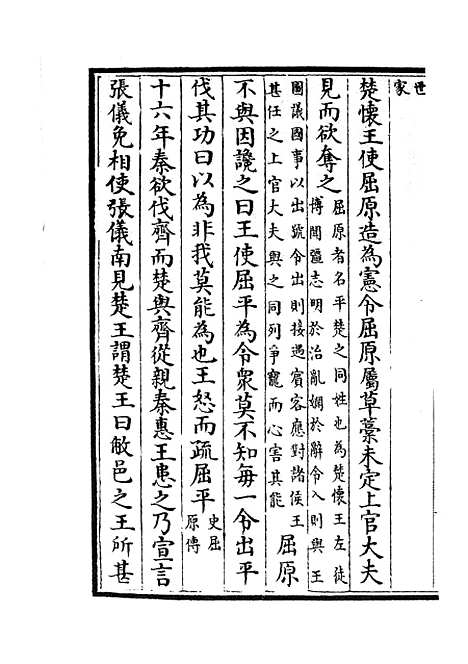 世
家
楚懷王使屈原造為憲令屈原屬草藁未定上官大夫
見而欲奪之
屈原者名平楚之同姓也為楚懷王左徒
博聞彊志明於治亂嫻於辭令入則與王
圖議國事以出號令出則接遇賓客應對諸侯王
甚任之上官大夫與之同列爭寵而心害其能
屈原
不與因讒之曰王使屈平為令衆莫不知每一令出平
伐其功曰以為非我莫能為也王怒而疏屈平
史屈
原傳
十六年秦欲伐齊而楚與齊從親秦惠王患之乃宣言
張儀免相使張儀南見楚王謂楚王曰敝邑之王所甚